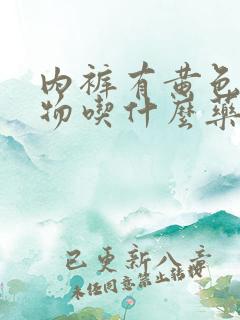 内裤有黄色
物吃什麼药
已更新八章
未经同意禁止转载